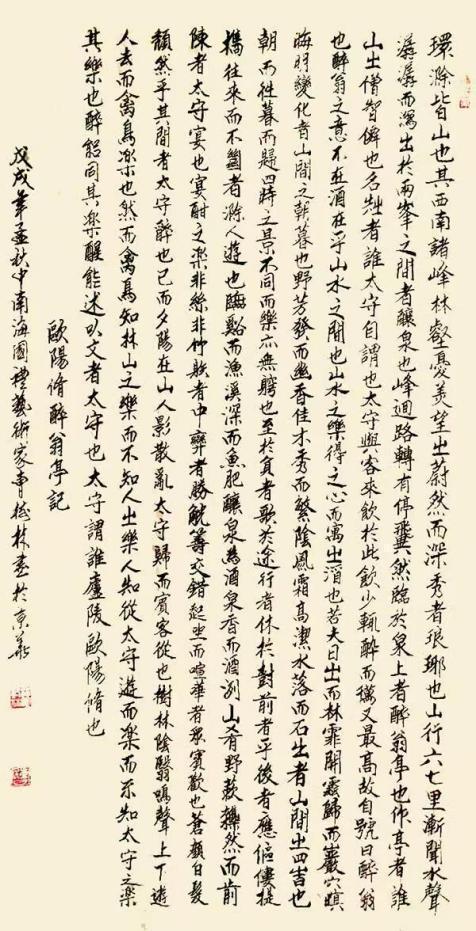 環滁皆山也其西南諸峰林壑憂美望之蔚然而深秀者琅琊也山行六七里漸聞水聲
潺潺而瀉出於兩峯之間者釀泉也峰迴路轉有停翼然臨於泉上者醉翁亭也作亭者誰
山之僧智僊也名之者誰太守自謂也太守與客來飲於此飲少輒醉而又最高故自號曰醉翁
也醉翁之意不在酒在乎山水之間也山水之樂得之心而寓之酒也若夫日出而林霏開雲歸而巖穴暝
晦明變化者山間之朝暮也野芳發而幽香佳木秀而繁陰風霜高潔水落而石出者山間之四也
朝而往暮而歸四時之景不同而樂亦無窮也至於負者歌於途行者休於樹前者乎後者應傴僂提
攜往來而不絕者滁人遊也臨谿而漁溪深而魚肥釀泉為酒泉香而酒洌山肴野蔌雜然而前
陳者太守宴也宴酣之樂非絲非竹者中弈者勝觥籌交錯起坐而喧華者眾賓歡也蒼顏白髮
頹然乎其間者太守醉也已而夕陽在山人影散亂太守歸而賓客從也樹林陰翳鳴聲上下遊
人去而禽鳥樂也然而禽鳥知林山之樂而不知人之樂人知從太守遊而樂而不知太守之樂
其樂也醉能同其樂醒能述以文者太守也太守謂誰廬陵歐陽脩也
歐陽脩醉翁亭記
戊戌年孟秋中南海國禮藝術家曹枝書於京華